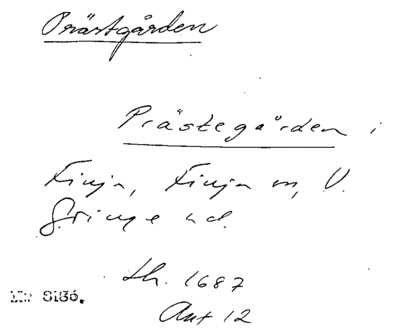 Prästgården
Prästegården i
Finja, Finja sn, V.
Göinge hd.
Lh. 1687
Ant 12